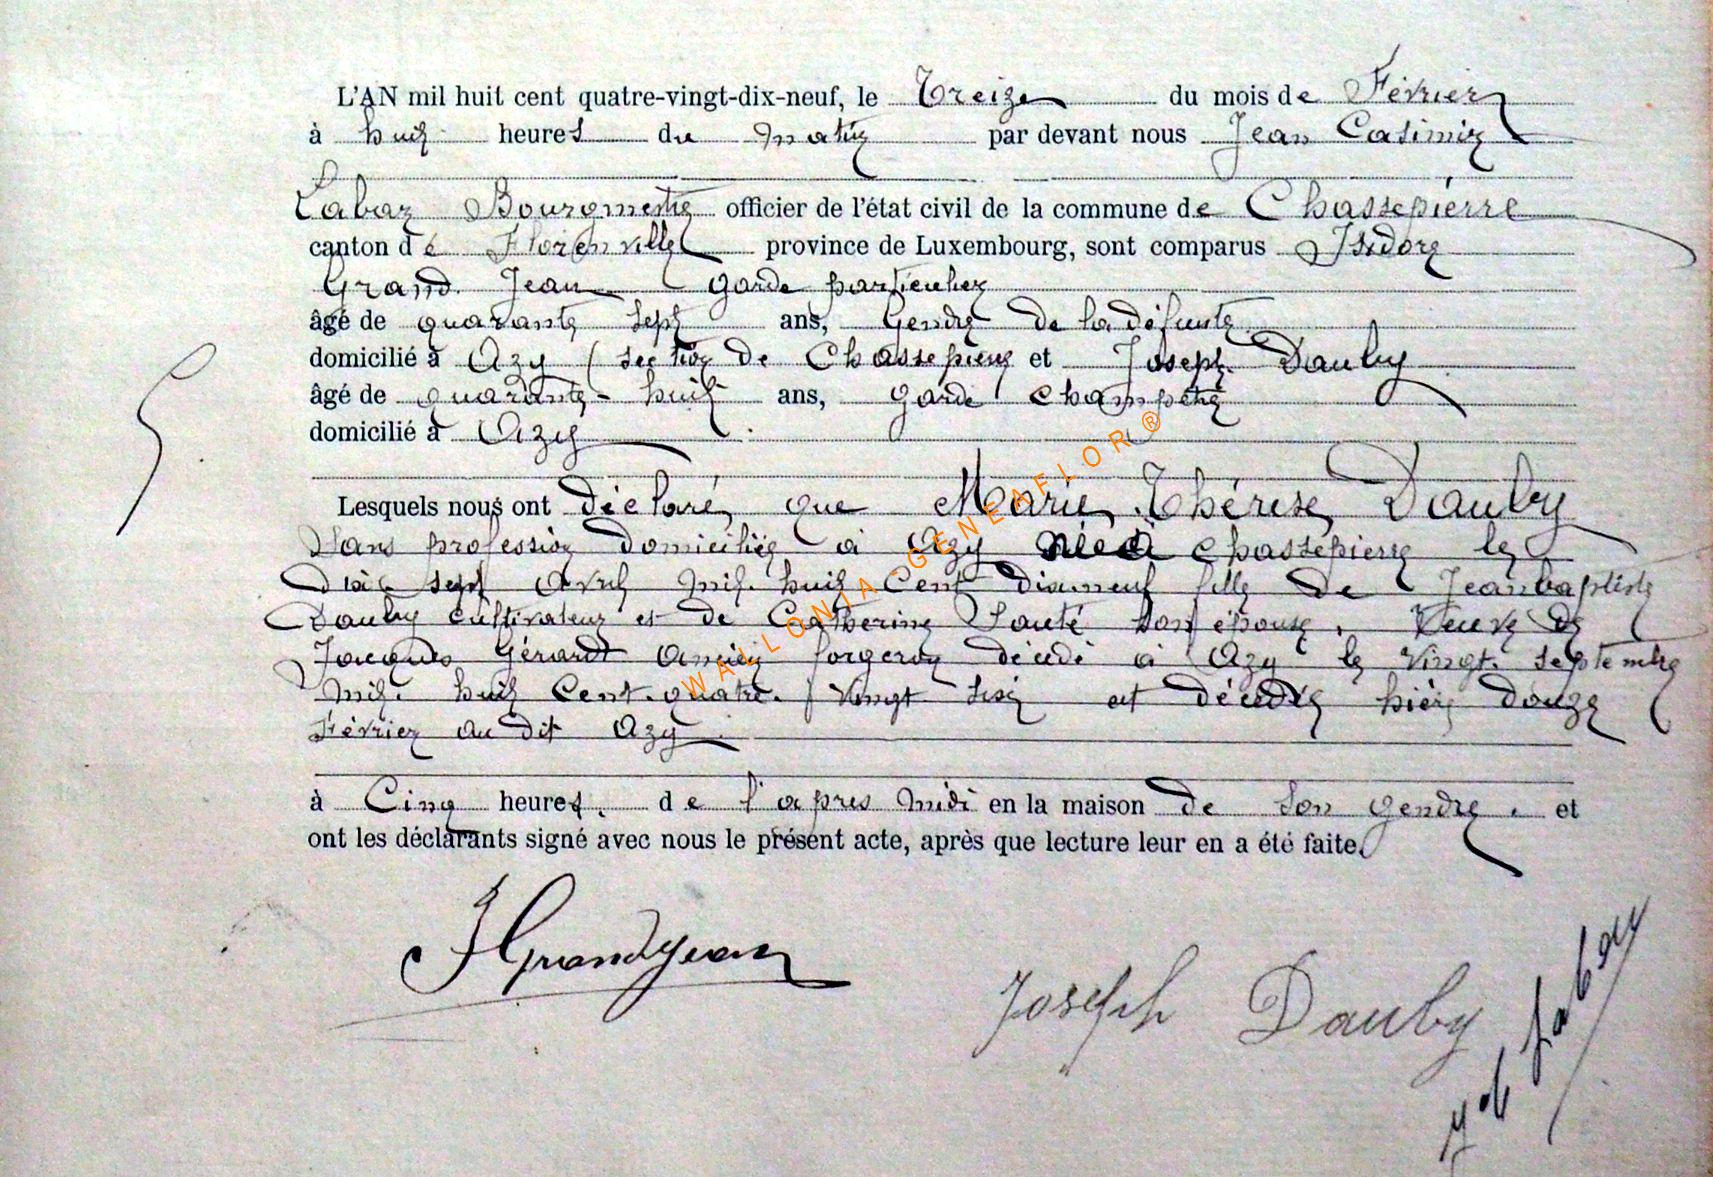 L'AN mil huit cent quatre-vingt-dix-neuf, le Treize du mois de Février
à huit heures du matin par devant nous Jean Casimir
Labay Bourgmestre officier de l'état civil de la commune de Chassepierre
canton de Florenville province de Luxembourg, sont comparus Isidore
Grand Jean garde particulier
âgé de quarante sept ans, Gendre de la défunte
domicilié à Azy (section de Chassepierre et Joseph Dauby
âgé de quarante-huit ans, garde champêtre
domicilié à Azy
Lesquels nous ont déclaré que Marie Thérèse Dauby
Sans profession domiciliée à Azy née à Chassepierre le
dix sept Avril mil huit Cent dixneuf fille de Jeanbaptiste
Dauby cultivateur et de Catherine Santé son épouse, Veuve de
Jacques Gérard ancien forgeron décédé à Azy le vingt septembre
mil huit Cent quatre Vingt six est décédée hier douze
Février au dit Azy
à Cinq heures, de l'apres midi en la maison de son gendre. et
ont les déclarants signé avec nous le présent acte, après que lecture leur en a été faite.
5
J Grandjean
Joseph Dauby
J. C. Labay
WALLONIA-GENEAFLOR®